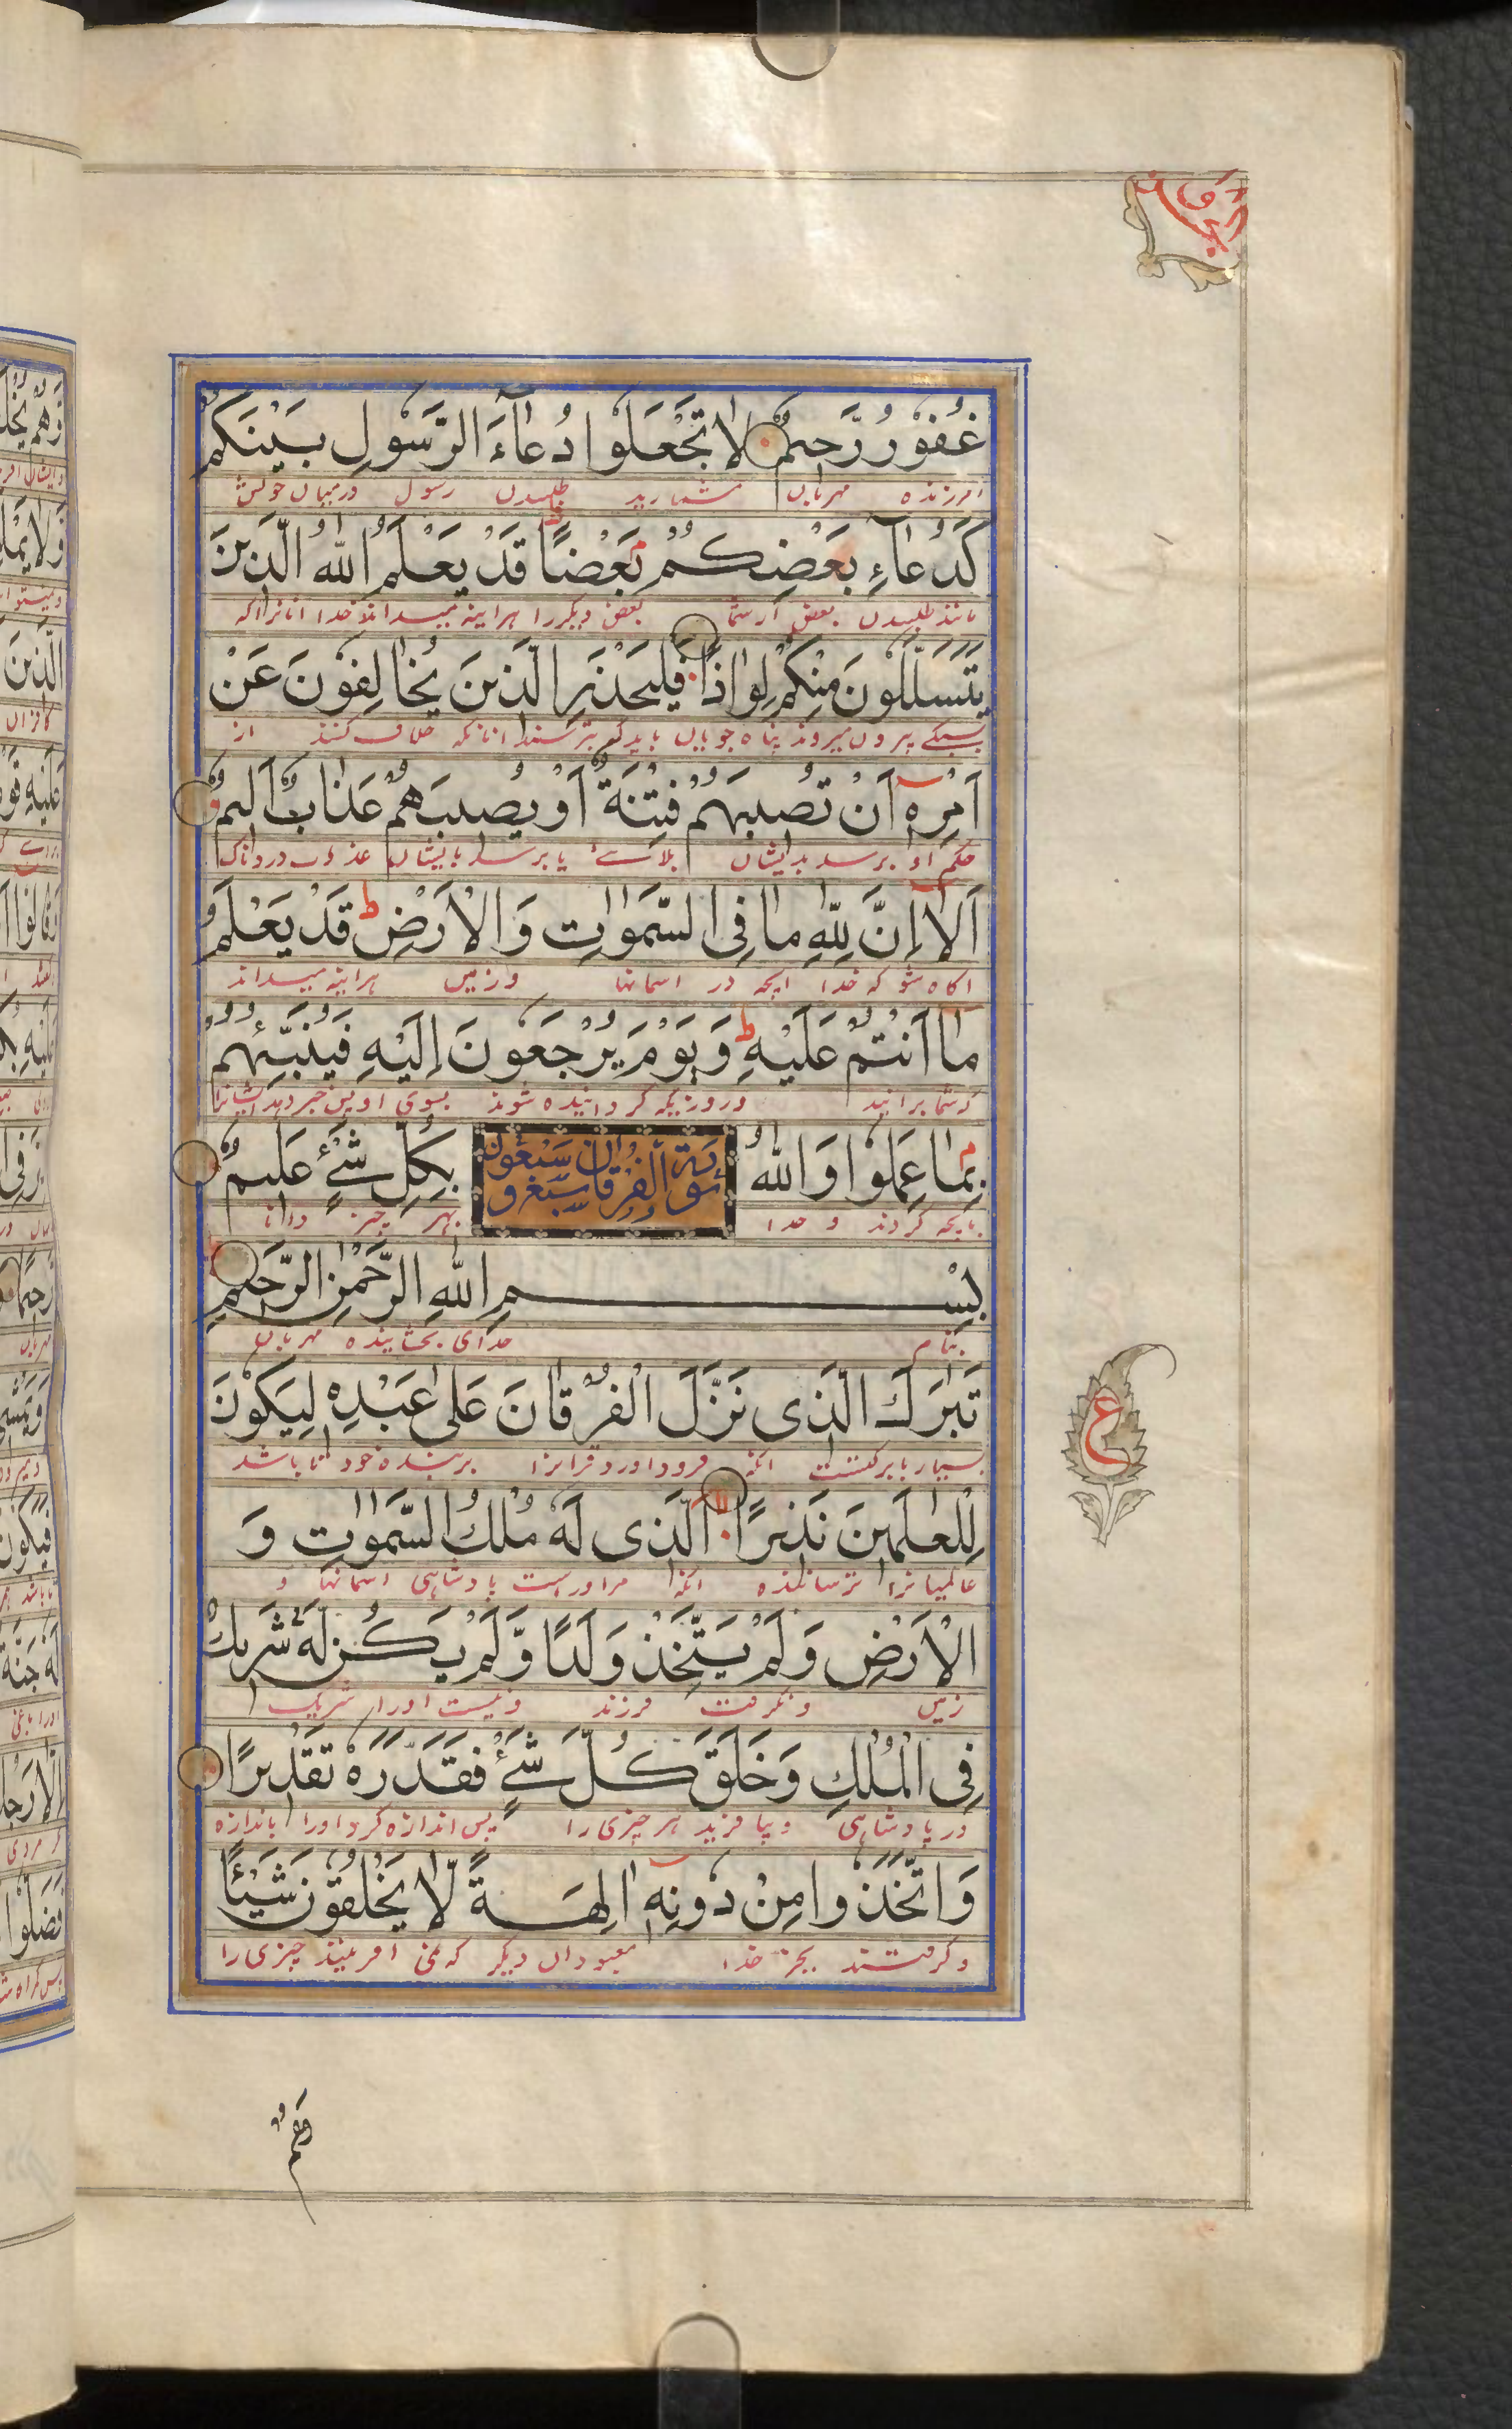 غَفُوْرٌ رَّحِيْمٌ لَا تَجْعَلُوْا دُعَآءَ الرَّسُوْلِ بَيْنَكُمْ
امرزنده مهربان مشمارید طلبیدن رسول درمیان خویش
كَدُعَآءِ بَعْضِكُمْ بَعْضًا قَدْ يَعْلَمُ اللّٰهُ الَّذِيْنَ
مانند طلبیدن بعض ازشما بعض دیکررا هراینه میداند خدا انانراکه
يَتَسَلَّلُوْنَ مِنْكُمْ لِوَاذًا فَلْيَحْذَرِ الَّذِيْنَ يُخَالِفُوْنَ عَنْ
بیرون میروند پناه جویان باید که بترسند انانکه خلاف کنند از
اَمْرِهٖٓ اَنْ تُصِيْبَهُمْ فِتْنَةٌ اَوْ يُصِيْبَهُمْ عَذَابٌ اَلِيْمٌ
حکم او برسد بدیشان بلائے یا برسد بایشان عذاب دردناک
اَلَآ اِنَّ لِلّٰهِ مَا فِى السَّمٰوٰتِ وَالْاَرْضِ ط قَدْ يَعْلَمُ
اکاه شو که خدا انچه در اسمانها و زمین هراینه میداند
مَآ اَنْتُمْ عَلَيْهِ ط وَيَوْمَ يُرْجَعُوْنَ اِلَيْهِ فَيُنَبِّئُهُمْ
که شما برانید و روزیکه کردانیده شوند بسوی او پس خبر دهد ایشانرا
بِمَا عَمِلُوْا وَاللّٰهُ بِكُلِّ شَيْءٍ عَلِيْمٌ
بانچه کردند و خدا بهر چیز دانا
بِسْمِ اللّٰهِ الرَّحْمٰنِ الرَّحِيْمِ
بنام خدای بخشاینده مهربان
تَبٰرَكَ الَّذِى نَزَّلَ الْفُرْقَانَ عَلٰى عَبْدِهٖ لِيَكُوْنَ
بسیار بابرکتست انکه فرود اورد قرانرا بر بنده خود تا باشد
لِلْعٰلَمِيْنَ نَذِيْرًا الَّذِى لَهٗ مُلْكُ السَّمٰوٰتِ وَ
عالمیانرا ترساننده انکه مراوراست پادشاهی اسمانها و
الْاَرْضِ وَلَمْ يَتَّخِذْ وَلَدًا وَّلَمْ يَكُنْ لَّهٗ شَرِيْكٌ
زمین و نکرفت فرزند و نیست اورا شریک
فِى الْمُلْكِ وَخَلَقَ كُلَّ شَيْءٍ فَقَدَّرَهٗ تَقْدِيْرًا
در پادشاهی و بیافرید هر چیزی را پس اندازه کرد اورا باندازه
وَاتَّخَذُوْا مِنْ دُوْنِهٖٓ اٰلِهَةً لَّا يَخْلُقُوْنَ شَيْئًا
و کرفتند بجز خدا معبودان دیکر که نمی افرینند چیزی را
ع
وَهُمْ